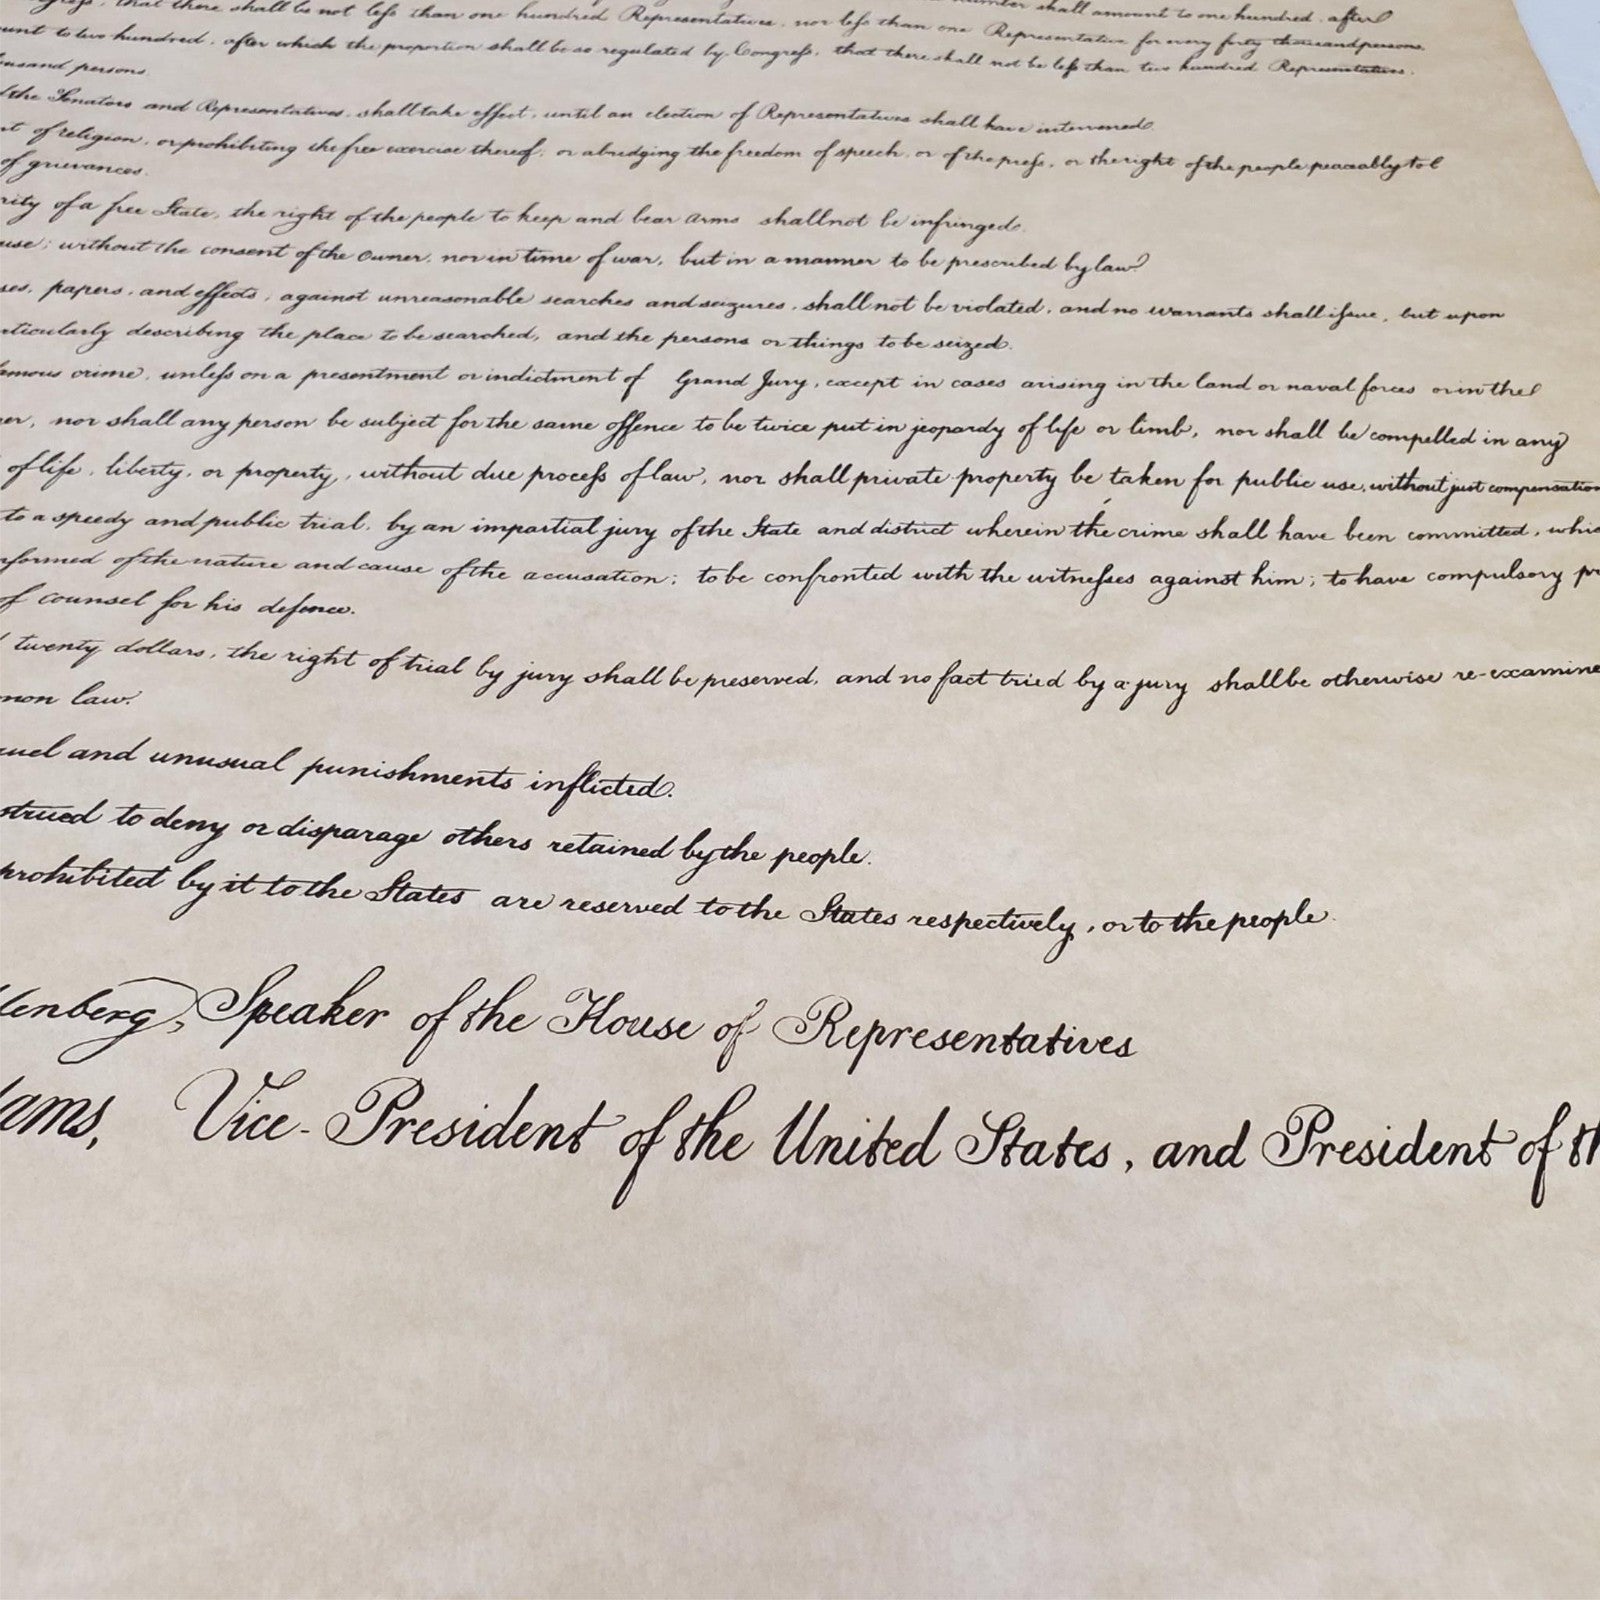 that there shall be not less than one hundred Representatives, nor less than one Representative for every forty thousand persons,
number shall amount to one hundred, after
unt to two hundred, after which the proportion shall be so regulated by Congress, that there shall not be less than two hundred Representatives,
ousand persons.
the Senators and Representatives, shall take effect, until an election of Representatives shall have intervened.
nt of religion, or prohibiting the free exercise thereof, or abridging the freedom of speech, or of the press, or the right of the people peaceably to
of grievances.
rity of a free State, the right of the people to keep and bear Arms shall not be infringed.
use; without the consent of the Owner, nor in time of war, but in a manner to be prescribed by law
ses, papers, and effects, against unreasonable searches and seizures, shall not be violated, and no warrants shall issue, but upon
rticularly describing the place to be searched, and the persons or things to be seized.
amous crime, unless on a presentment or indictment of Grand Jury, except in cases arising in the land or naval forces or in the
er, nor shall any person be subject for the same offence to be twice put in jeopardy of life or limb, nor shall be compelled in any
of life, liberty, or property, without due process of law, nor shall private property be taken for public use, without just compensation
to a speedy and public trial, by an impartial jury of the State and district wherein the crime shall have been committed, whic
nformed of the nature and cause of the accusation; to be confronted with the witnesses against him; to have compulsory pr
of counsel for his defence.
twenty dollars, the right of trial by jury shall be preserved, and no fact tried by a jury shall be otherwise re-examine
mon law.
uel and unusual punishments inflicted.
strued to deny or disparage others retained by the people.
prohibited by it to the States are reserved to the States respectively, or to the people.
lenberg, Speaker of the House of Representatives
dams, Vice-President of the United States, and President of th